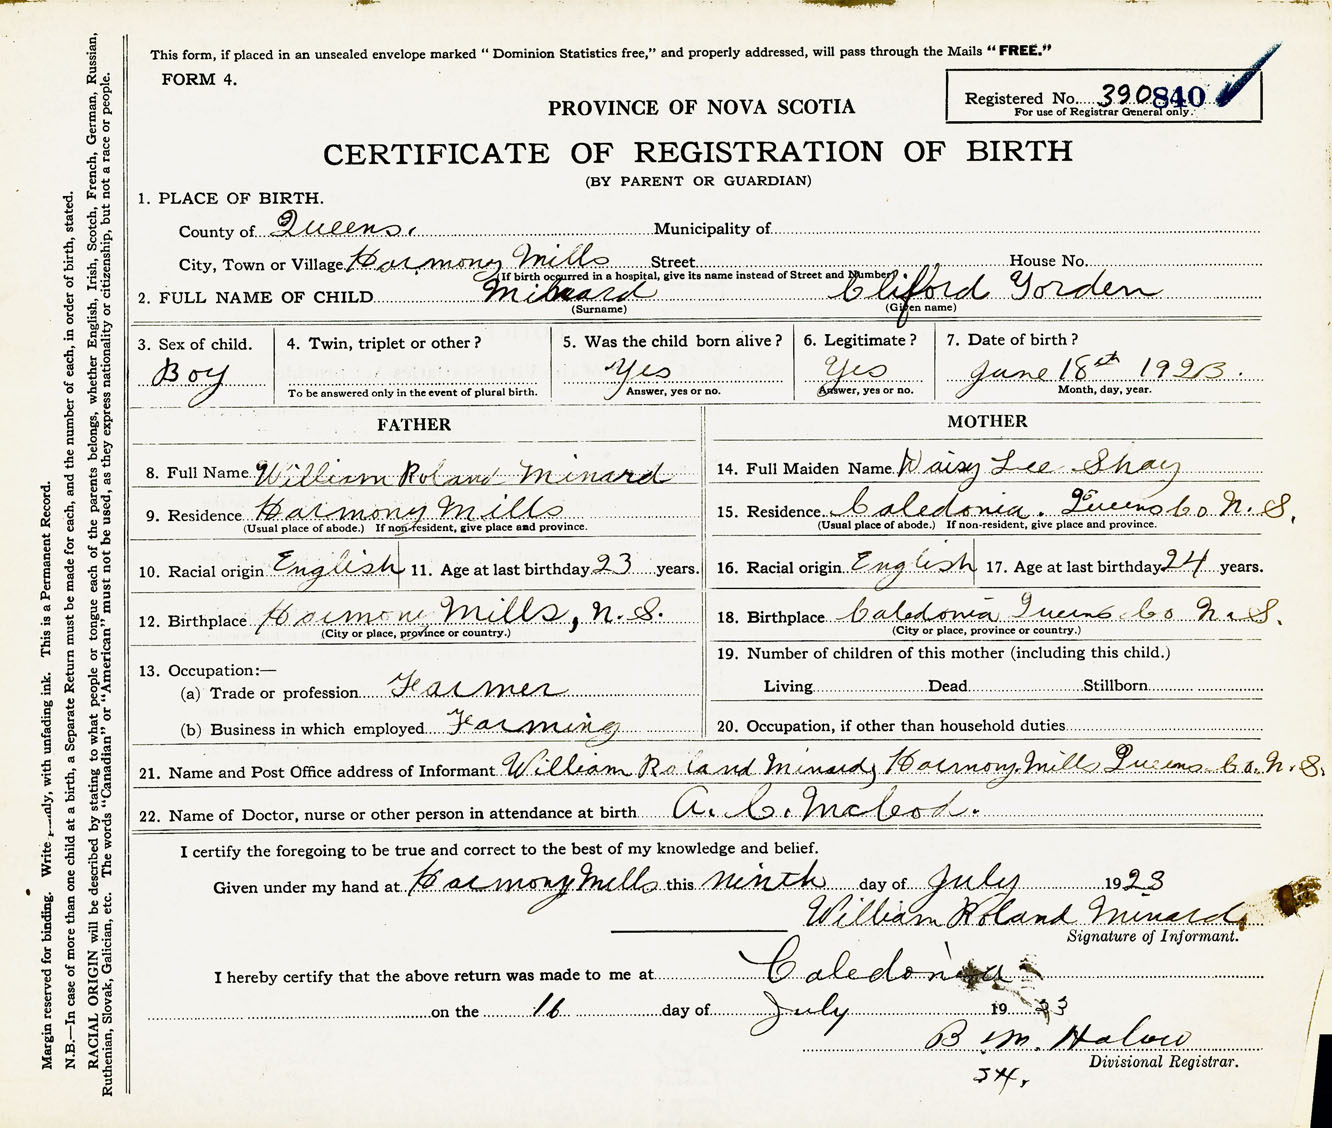 This form, if placed in an unsealed envelope marked “Dominion Statistics free,” and properly addressed, will pass through the Mails “FREE.”
FORM 4.
Registered No. 390 840
For use of Registrar General only.
PROVINCE OF NOVA SCOTIA
CERTIFICATE OF REGISTRATION OF BIRTH
(BY PARENT OR GUARDIAN)
1. PLACE OF BIRTH.
County of Queens. Municipality of
City, Town or Village Harmony Mills Street House No.
(If birth occurred in a hospital, give its name instead of Street and Number)
2. FULL NAME OF CHILD Minard Clifford Gorden
(Surname) (Given name)
3. Sex of child. 4. Twin, triplet or other? 5. Was the child born alive? 6. Legitimate? 7. Date of birth?
Boy Yes Yes June 18th 1923.
To be answered only in the event of plural birth. Answer, yes or no. Answer, yes or no. Month, day, year.
FATHER
8. Full Name William Roland Minard
9. Residence Harmony Mills
(Usual place of abode.) If non-resident, give place and province.
10. Racial origin English 11. Age at last birthday 23 years.
12. Birthplace Harmony Mills, N.S.
(City or place, province or country.)
13. Occupation:—
(a) Trade or profession Farmer
(b) Business in which employed Farming
MOTHER
14. Full Maiden Name Daisy Lee Shay
15. Residence Caledonia. Queens Co N.S.
(Usual place of abode.) If non-resident, give place and province.
16. Racial origin English 17. Age at last birthday 24 years.
18. Birthplace Caledonia Queens Co N.S.
(City or place, province or country.)
19. Number of children of this mother (including this child.)
Living Dead Stillborn
20. Occupation, if other than household duties
21. Name and Post Office address of Informant William Roland Minard, Harmony Mills Queens Co. N.S.
22. Name of Doctor, nurse or other person in attendance at birth A. C. McLeod.
I certify the foregoing to be true and correct to the best of my knowledge and belief.
Given under my hand at Harmony Mills this ninth day of July 1923
William Roland Minard
Signature of Informant.
I hereby certify that the above return was made to me at Caledonia
on the 16 day of July 19 23
B M. Halow
Divisional Registrar.
Margin reserved for binding. Write with unfading ink. This is a Permanent Record.
N.B.—In case of more than one child at a birth, a Separate Return must be made for each, and the number of each, in order of birth, stated.
RACIAL ORIGIN will be described by stating to what people or tongue each of the parents belongs, whether English, Irish, Scotch, French, German, Russian,
Ruthenian, Slovak, Galician, etc. The words “Canadian” or “American” must not be used, as they express nationality or citizenship, but not a race or people.